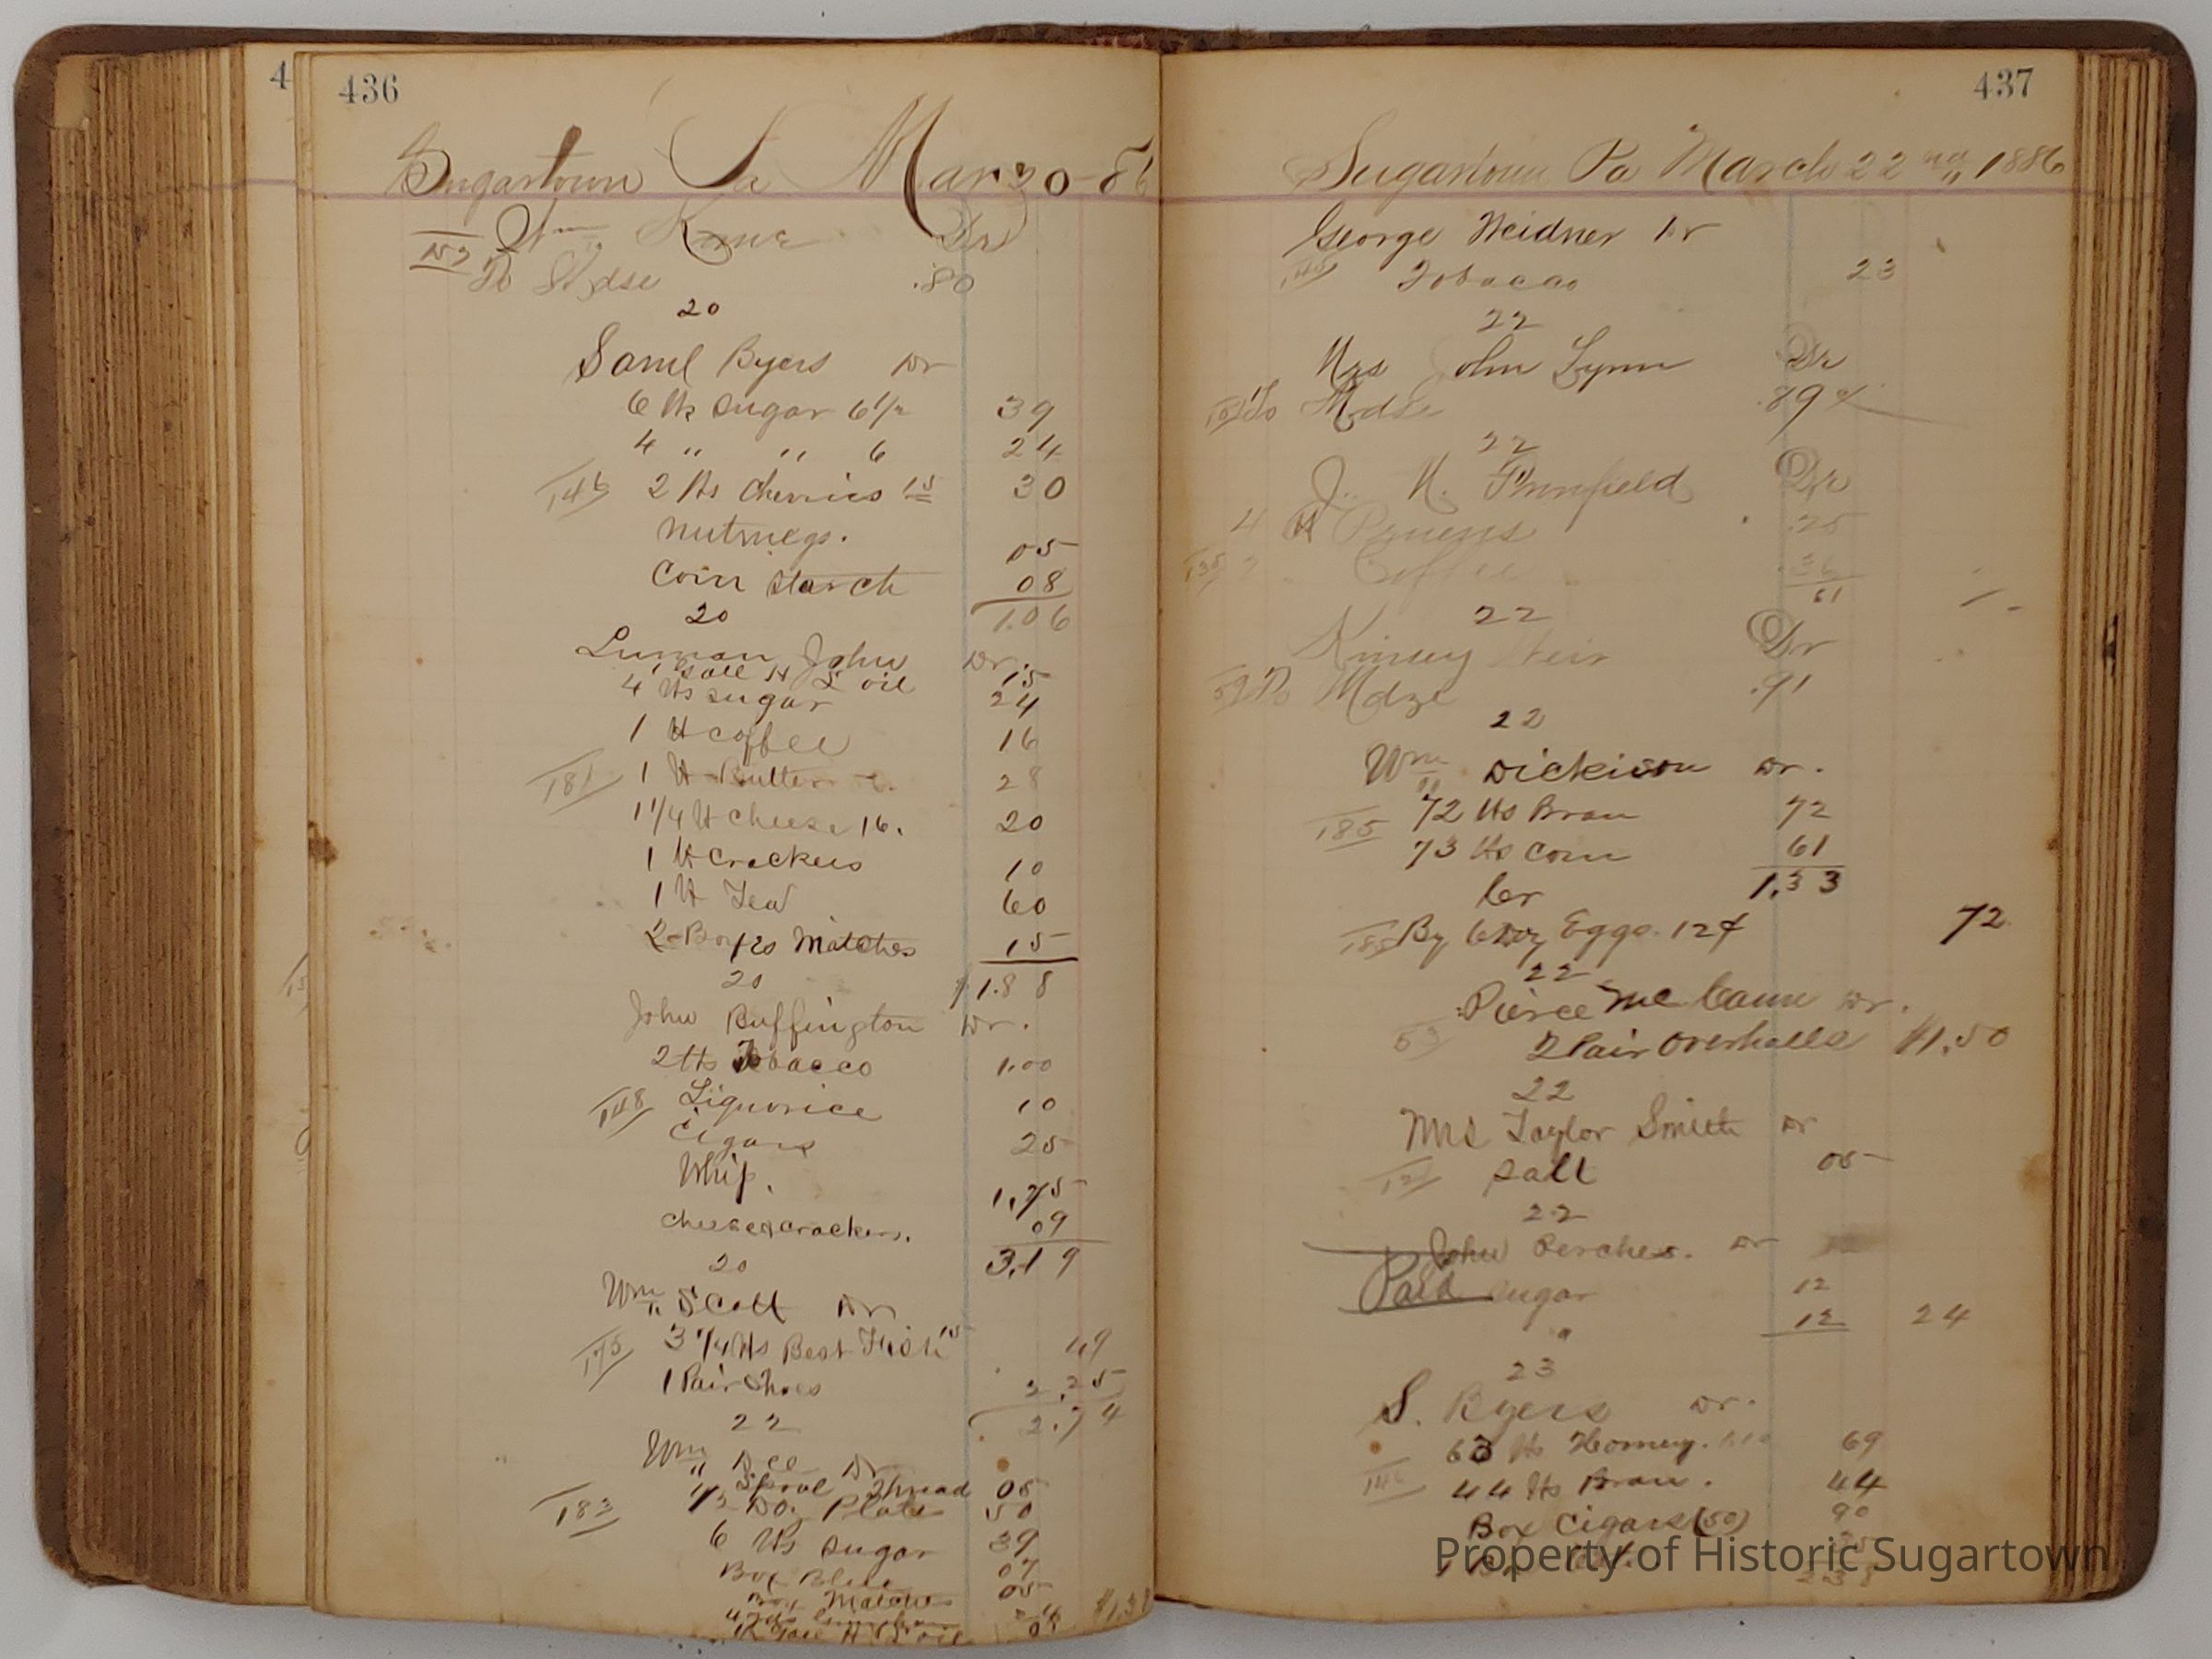 4
436
Sugartown Pa Mar 20 86
Wm Kane Dr
153 To Mdse .80
20
Saml Byers Dr
6 lbs Sugar 6 1/2 39
4 " " 6 24
146 2 lbs Cherries 15 30
Nutmegs. 05
Corn Starch 08
20 1.06
Luman John Dr.
1 Gall H L oil 15
4 lbs Sugar 24
1 lb coffee 16
181 1 lb Butter 28
1 1/4 lb cheese 16. 20
1 lb Crackers 10
1 lb Tea 60
2 Boxes Matches 15
20 1.88
John Buffington Dr.
2 lbs Tobacco 1.00
148 Liquorice 10
Cigars 25
Whip. 1,75
cheese & crackers. 09
20 3.19
Wm Scott Dr
175 3 1/4 lbs Best Fish 15 49
1 Pair Shoes 2.25
22 2.74
Wm Dee Dr
Spool Thread 05
183 1/2 Doz Plates 50
6 lbs Sugar 39
Box Blue 07
Box Matches 05
437
Sugartown Pa March 22nd 1886
George Weidner Dr
Tobacco 23
22
Mrs John Lynn Dr
To Mdse .89
22
J. H. Pennfield Dr
4 lb Pruens .25
Coffee .36
61
22
Kinsey Weir Dr
59 To Mdze .91
22
Wm Dickison Dr.
185 72 lbs Bran 72
73 lbs Corn 61
Cr 1,33
185 By 6 Doz Eggs. 12¢ 72
22
Pierce McCann Dr.
53 2 Pair Overhalls $1.50
22
Mrs Taylor Smith Dr
121 Salt 05
22
John Perches. Dr
Paid Sugar 12
" 12 24
23
S. Byers Dr.
63 lbs Homeny. 69
146 44 lbs Bran. 44
Box Cigars (50) 90
Property of Historic Sugartown